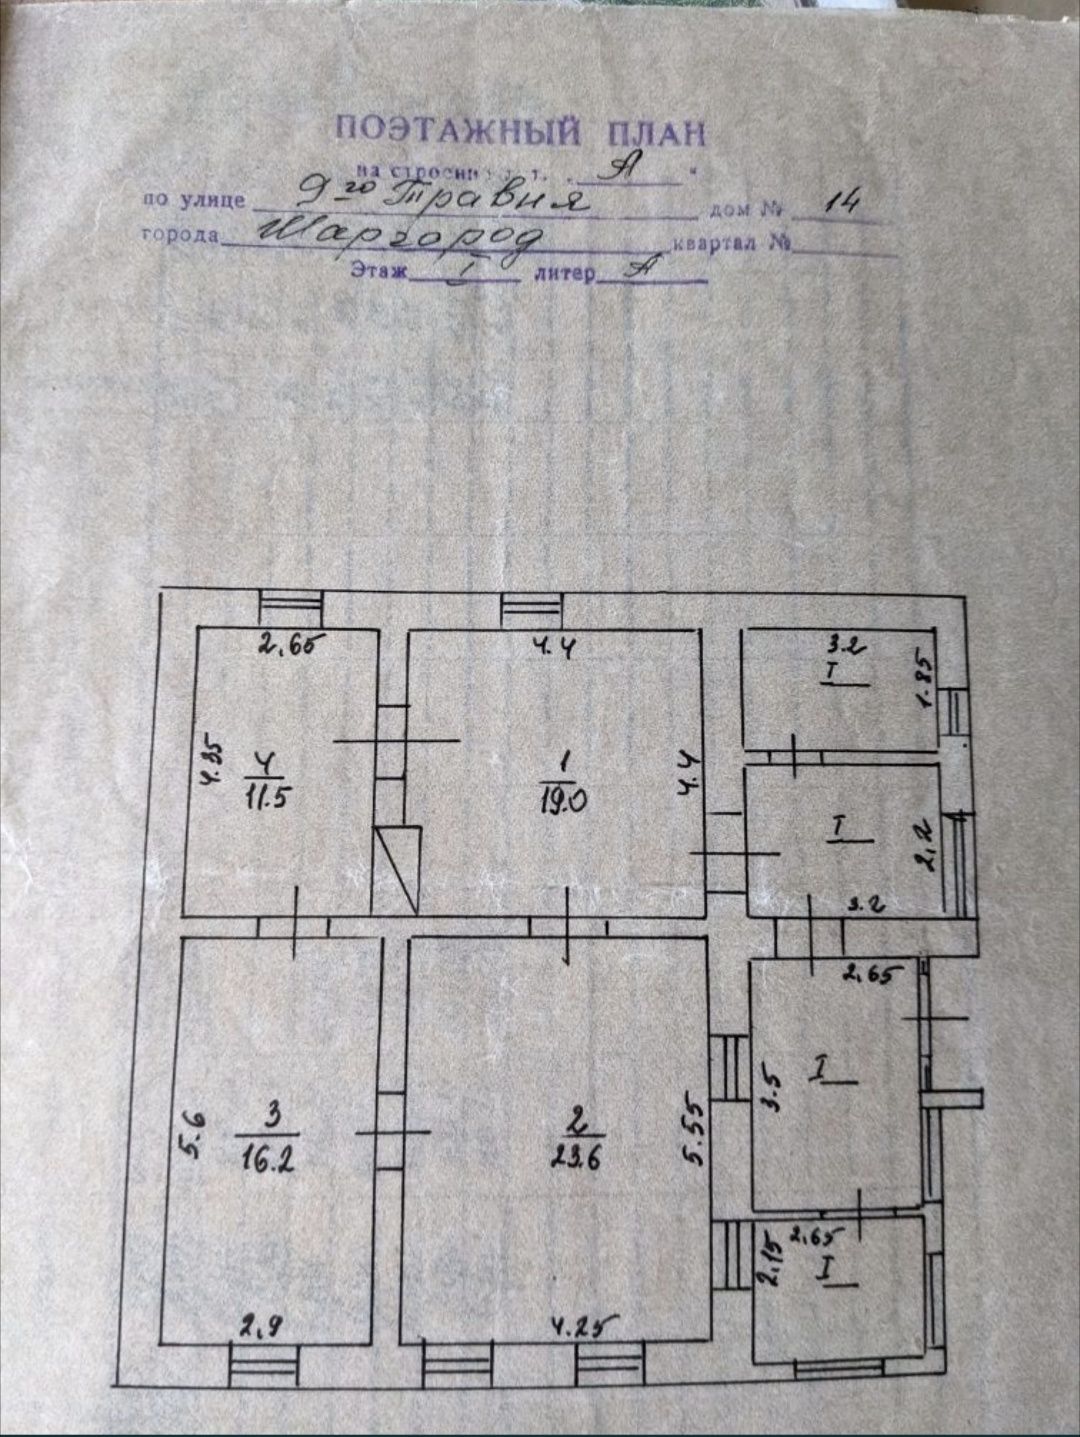 ПОЭТАЖНЫЙ ПЛАН
на строени т. „ А “
по улице 9го Травня дом № 14
города Шаргород квартал №
Этаж I литер А
2,65
4.4
3.2
I
1.85
4.35
4
11.5
1
19.0
4.4
I
2,2
3.2
2,65
5.6
3
16.2
2
23.6
5.55
3.5
I
2,65
2,15
I
2,9
4.25